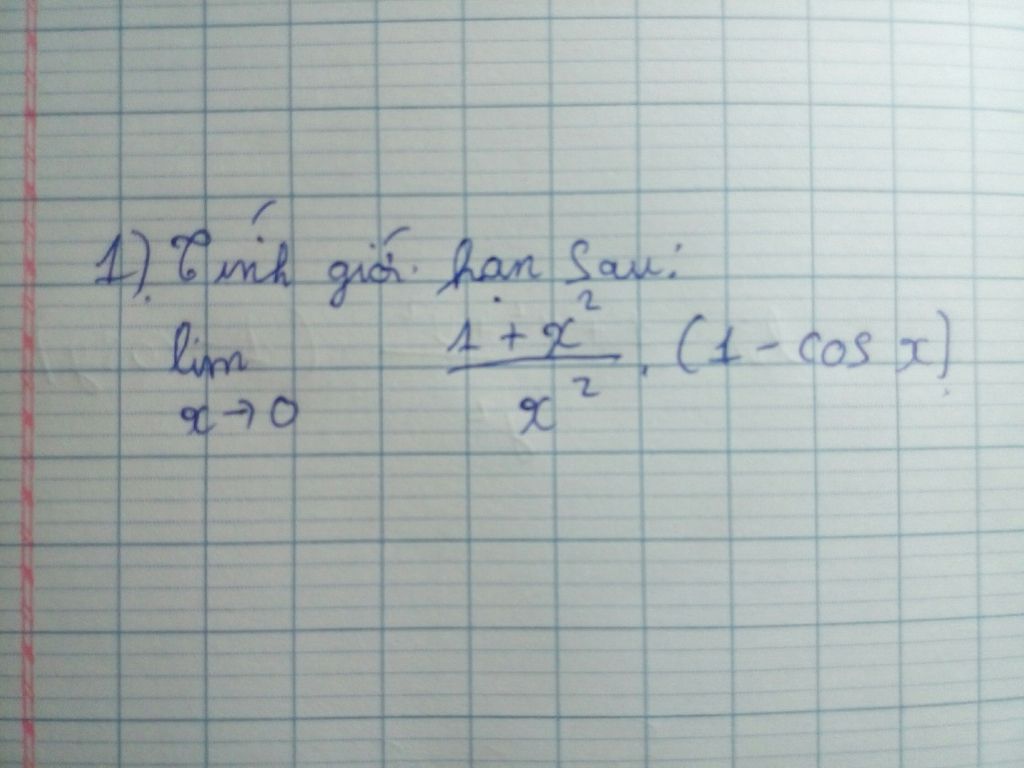 1) Tính giới hạn sau:
lim 1 + x² / x² . (1 - cos x)
x → 0